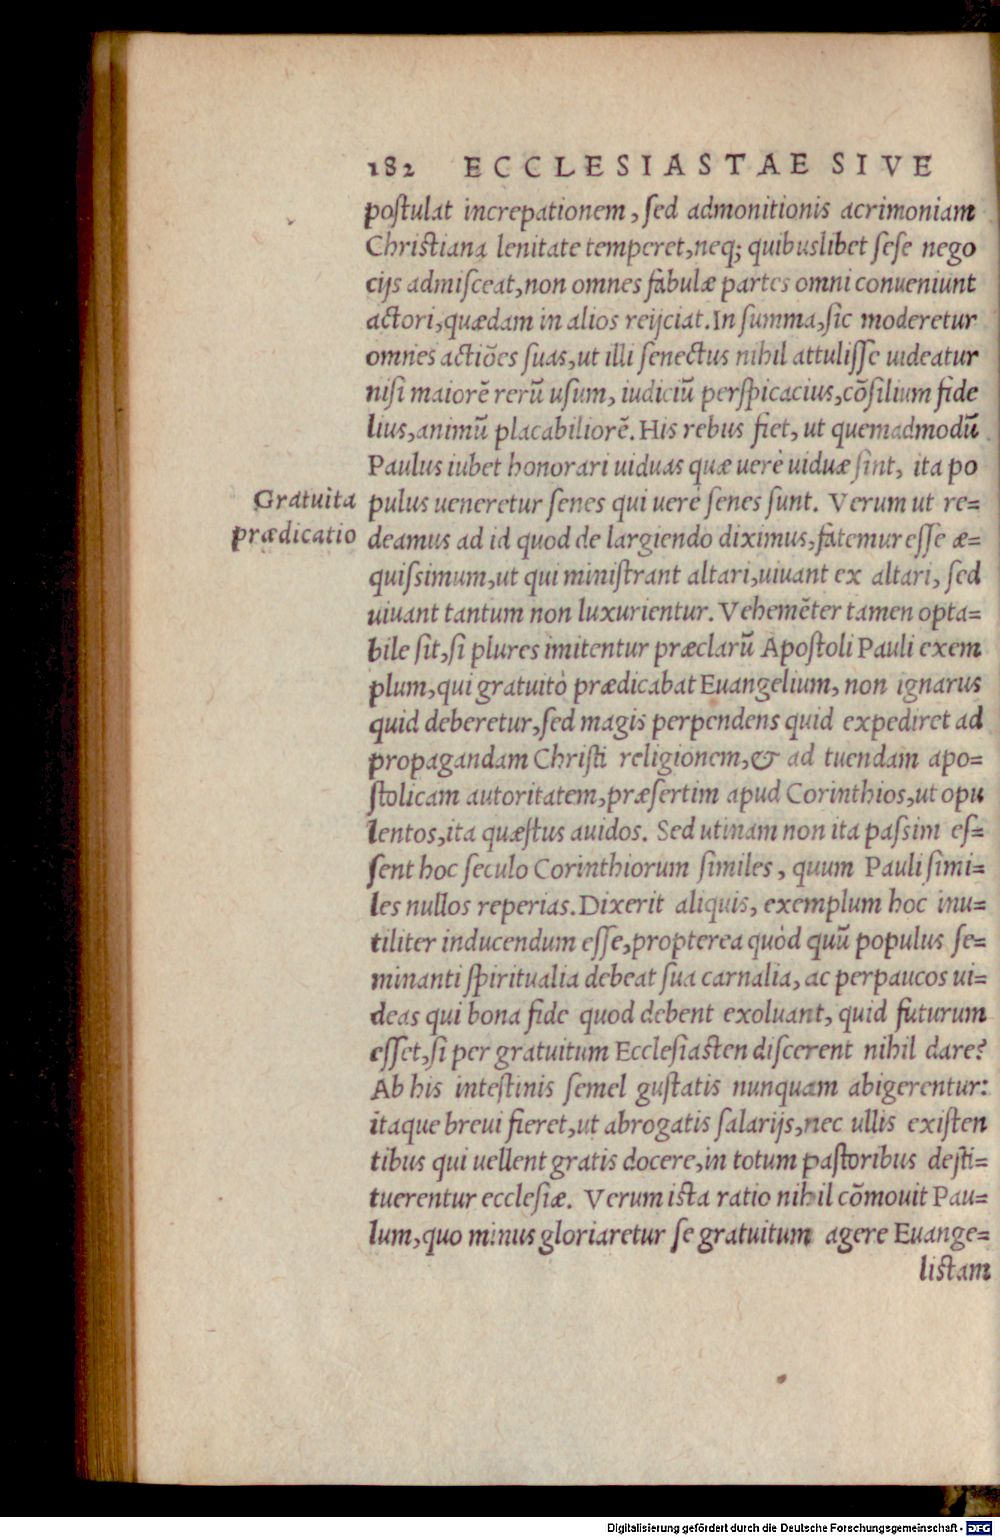 182 ECCLESIASTAE SIVE
postulat increpationem, sed admonitionis acrimoniam
Christiana lenitate temperet, neq; quibuslibet sese nego
cijs admisceat, non omnes fabulæ partes omni conueniunt
actori, quædam in alios reijciat. In summa, sic moderetur
omnes actiões suas, ut illi senectus nihil attulisse uideatur
nisi maiorẽ rerũ usum, iudiciũ perspicacius, cõsilium fide
lius, animũ placabiliorẽ. His rebus fiet, ut quemadmodũ
Paulus iubet honorari uiduas quæ uerè uiduæ sint, ita po
Gratuita
pulus ueneretur senes qui uerè senes sunt. Verum ut re=
prædicatio
deamus ad id quod de largiendo diximus, fatemur esse æ=
quissimum, ut qui ministrant altari, uiuant ex altari, sed
uiuant tantum non luxurientur. Vehemẽter tamen opta=
bile sit, si plures imitentur præclarũ Apostoli Pauli exem
plum, qui gratuitò prædicabat Euangelium, non ignarus
quid deberetur, sed magis perpendens quid expediret ad
propagandam Christi religionem, & ad tuendam apo=
stolicam autoritatem, præsertim apud Corinthios, ut opu
lentos, ita quæstus auidos. Sed utinam non ita passim es=
sent hoc seculo Corinthiorum similes, quum Pauli simi=
les nullos reperias. Dixerit aliquis, exemplum hoc inu=
tiliter inducendum esse, propterea quòd quũ populus se=
minanti spiritualia debeat sua carnalia, ac perpaucos ui=
deas qui bona fide quod debent exoluant, quid futurum
esset, si per gratuitum Ecclesiasten discerent nihil dare?
Ab his intestinis semel gustatis nunquam abigerentur:
itaque breui fieret, ut abrogatis salarijs, nec ullis existen
tibus qui uellent gratis docere, in totum pastoribus desti=
tuerentur ecclesiæ. Verum ista ratio nihil cõmouit Pau=
lum, quo minus gloriaretur se gratuitum agere Euange=
listam
Digitalisierung gefördert durch die Deutsche Forschungsgemeinschaft - DFG